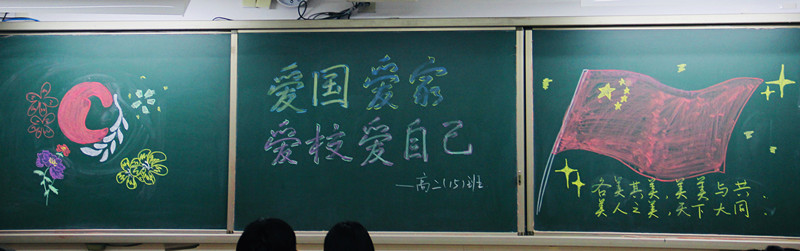 爱国爱家
爱校爱自己
—高二(15)班
各美其美,美美与共.
美人之美,天下大同.